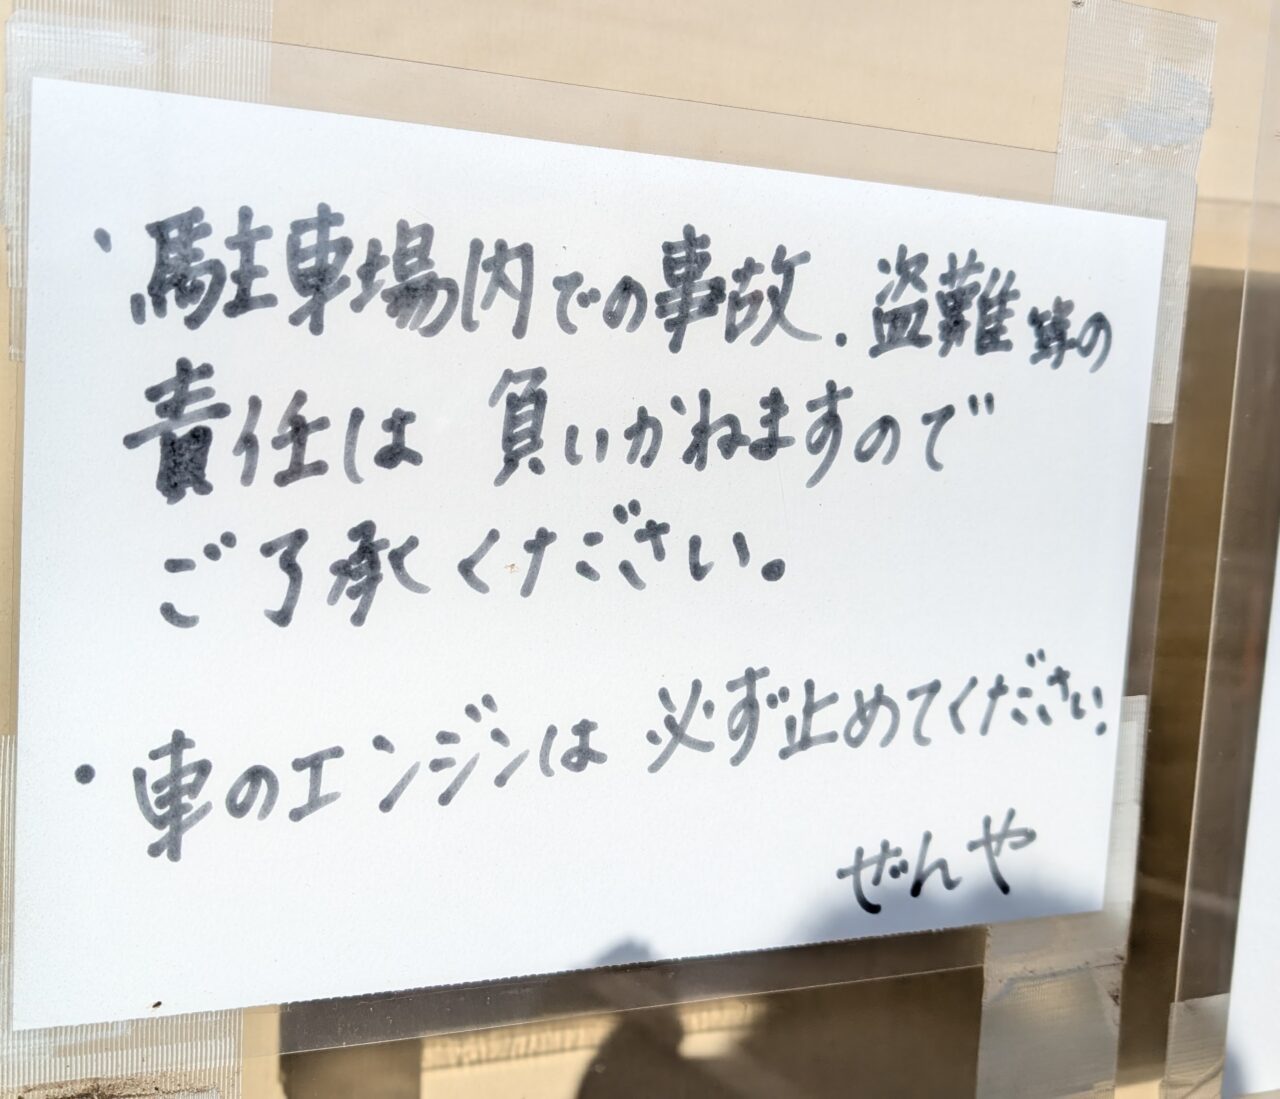 ・駐車場内での事故.盗難等の
責任は 負いかねますので
ご了承ください。
・車のエンジンは 必ず止めてください。
ぜんや